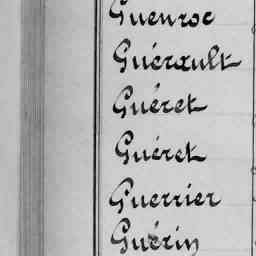 Guenroc
Guérault
Guéret
Guéret
Guerrier
Guérin